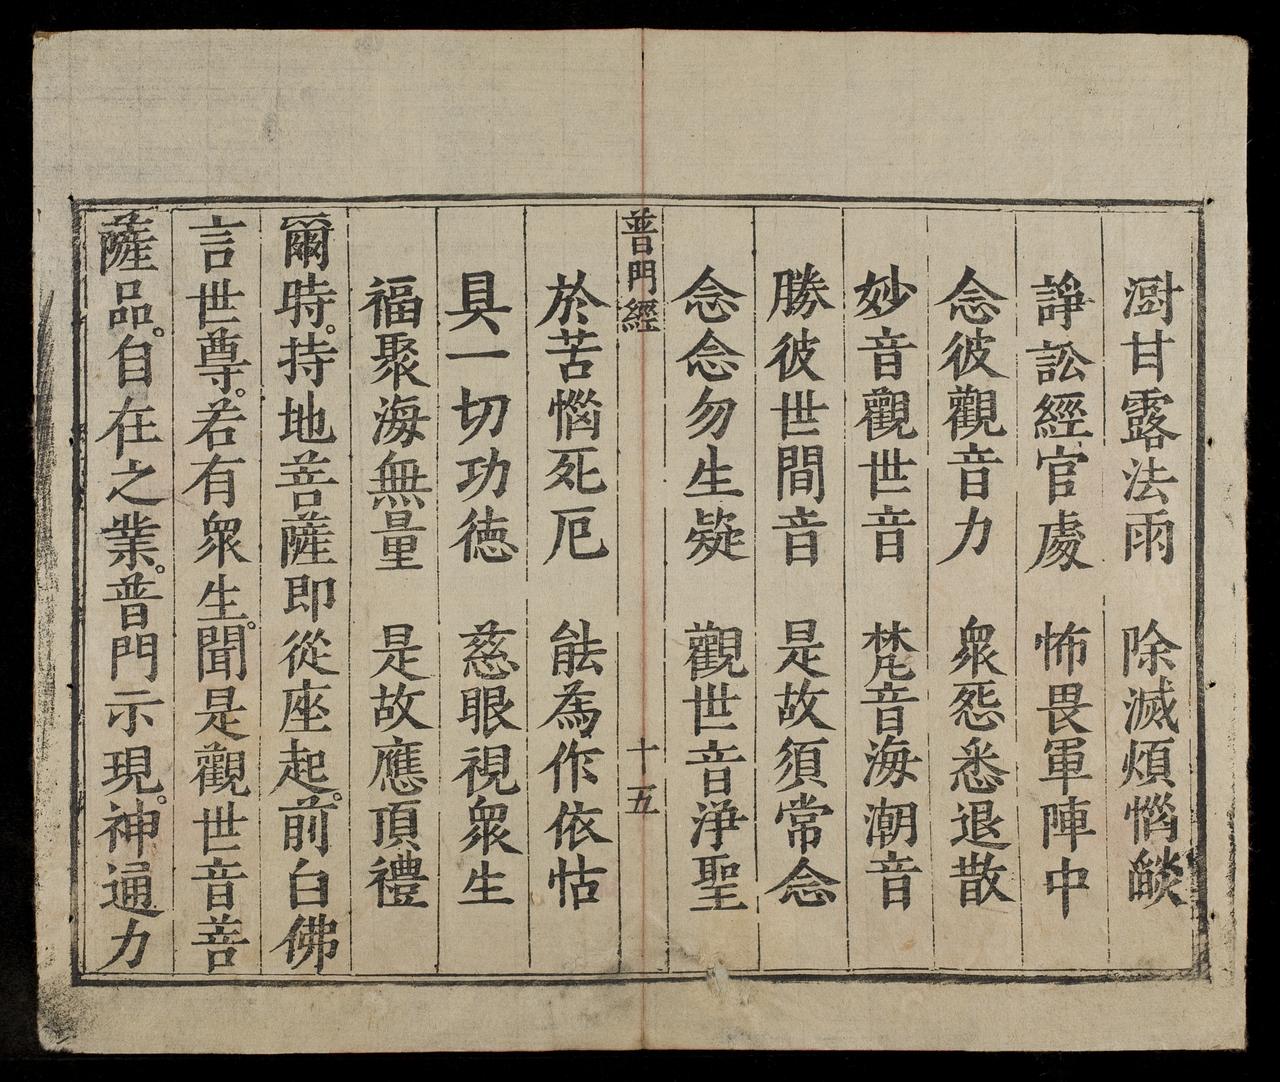 澍甘露法雨　除滅煩惱𦦨
諍訟經官處　怖畏軍陣中
念彼觀音力　衆怨悉退散
妙音觀世音　梵音海潮音
勝彼世間音　是故須常念
念念勿生疑　觀世音淨聖
普門經　十五
於苦惱死厄　能為作依怙
具一切功德　慈眼視衆生
福聚海無量　是故應頂禮
爾時。持地菩薩即從座起。前白佛
言世尊。若有衆生。聞是觀世音菩
薩品。自在之業。普門示現。神通力